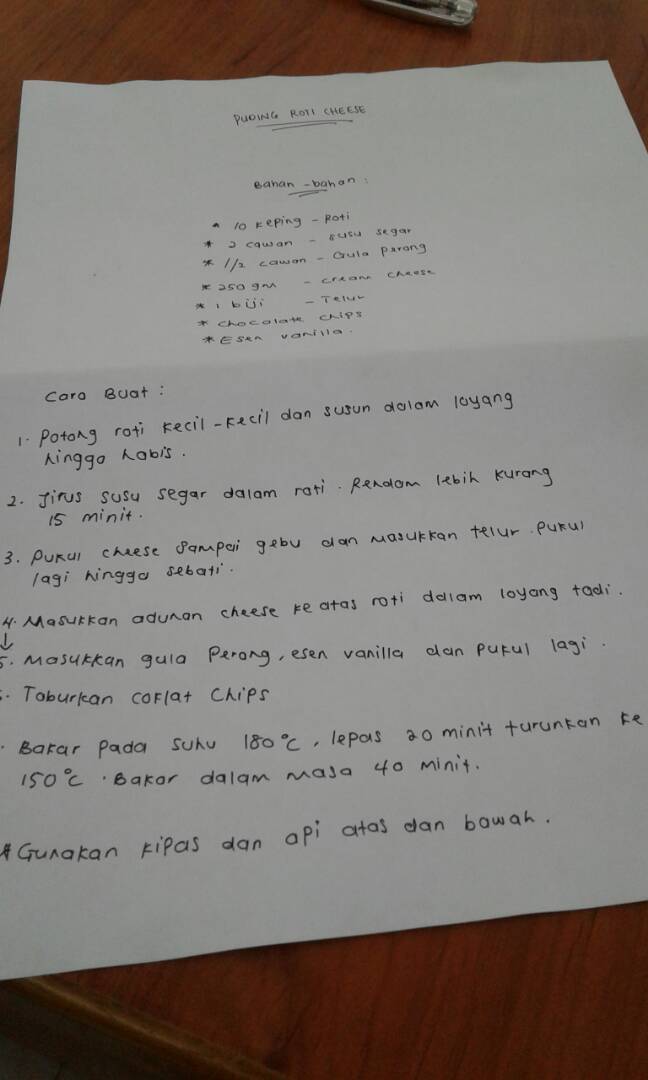 PUDING ROTI CHEESE
Bahan-bahan :
* 10 keping - Roti
* 2 cawan - susu segar
* 1/2 cawan - Gula perang
* 250 gm - cream cheese
* 1 biji - Telur
* chocolate chips
* Esen vanilla.
Cara Buat :
1. Potong roti kecil-kecil dan susun dalam loyang
hingga habis.
2. Jirus susu segar dalam roti. Rendam lebih kurang
15 minit.
3. Pukul cheese sampai gebu dan masukkan telur. Pukul
lagi hingga sebati.
4. Masukkan adunan cheese ke atas roti dalam loyang tadi.
↓
5. Masukkan gula perang, esen vanilla dan pukul lagi.
. Taburkan coklat chips
. Bakar pada suhu 180°C, lepas 20 minit turunkan ke
150°C. Bakar dalam masa 40 minit.
* Gunakan kipas dan api atas dan bawah.